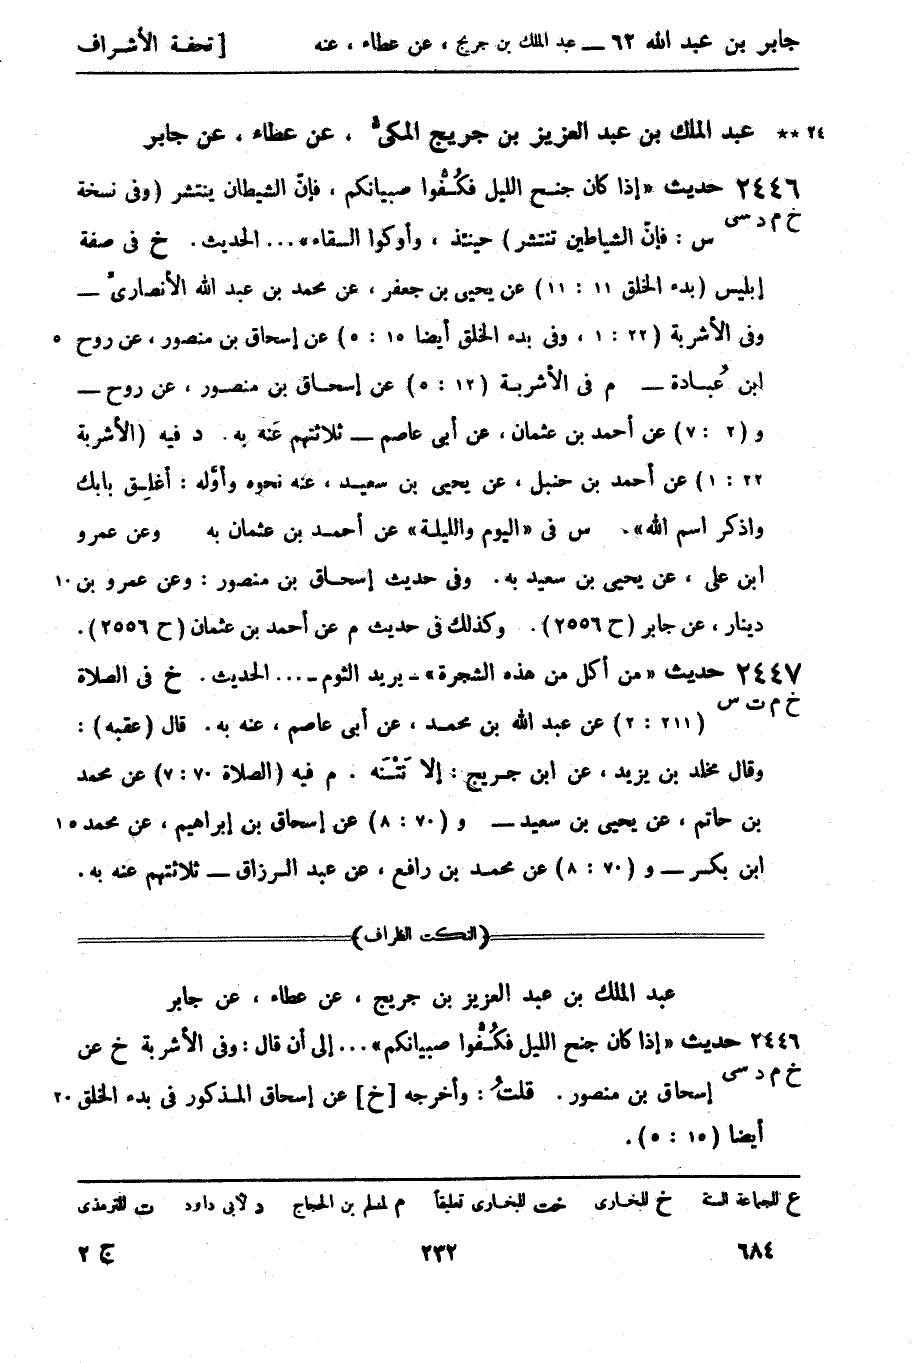 جابر بن عبد الله ٦٢ ـــ عبد الملك بن جريج ، عن عطاء ، عنه [ تحفة الأشراف
٢٤ ** عبد الملك بن عبد العزيز بن جريج المكىّ ، عن عطاء ، عن جابر
٢٤٤٦ حديث «إذا كان جنح الليل فكُفُّوا صبيانكم ، فإنّ الشيطان ينتشر (وفى نسخة
خ م د سى س : فإنّ الشياطين تنتشر) حينئذ ، وأوكوا السقاء»... الحديث . خ فى صفة
إبليس (بدء الخلق ١١ : ١١) عن يحيى بن جعفر ، عن محمد بن عبد الله الأنصارىّ ــ
وفى الأشربة (٢٢ : ١ ، وفى بدء الخلق أيضا ١٥ : ٥) عن إسحاق بن منصور ، عن روح ٥
ابن عُبادة ـــ م فى الأشربة (١٢ : ٥) عن إسحاق بن منصور ، عن روح ــ
و (٢ : ٧) عن أحمد بن عثمان ، عن أبى عاصم ــ ثلاثتهم عَنه به . د فيه (الأشربة
٢٢ : ١) عن أحمد بن حنبل ، عن يحيى بن سعيد ، عنه نحوه وأوّله : أغلِق بابك
واذكر اسم الله» . س فى «اليوم والليلة» عن أحمد بن عثمان به وعن عمرو
ابن على ، عن يحيى بن سعيد به . وفى حديث إسحاق بن منصور : وعن عمرو بن ١٠
دينار ، عن جابر (ح ٢٥٥٦) . وكذلك فى حديث م عن أحمد بن عثمان (ح ٢٥٥٦) .
٢٤٤٧ حديث «من أكل من هذه الشجرة» ـ يريد الثوم ـ... الحديث . خ فى الصلاة
خ م ت س (٢١١ : ٢) عن عبد الله بن محمد ، عن أبى عاصم ، عنه به . قال (عقبه) :
وقال مخلد بن يزيد ، عن ابن جريج : إلا نَتْنَه . م فيه (الصلاة ٧٠ : ٧) عن محمد
بن حاتم ، عن يحيى بن سعيد ـــ و (٧٠ : ٨) عن إسحاق بن إبراهيم ، عن محمد ١٥
ابن بكر ـــ و (٧٠ : ٨) عن محمد بن رافع ، عن عبد الرزاق ــ ثلاثتهم عنه به .
(النكت الظراف)
عبد الملك بن عبد العزيز بن جريج ، عن عطاء ، عن جابر
٢٤٤٦ حديث «إذا كان جنح الليل فكُفُّوا صبيانكم»... إلى أن قال : وفى الأشربة خ عن
خ م د سى إسحاق بن منصور . قلتُ : وأخرجه [خ] عن إسحاق المذكور فى بدء الخلق ٢٠
أيضا (١٥ : ٥) .
ع للجماعة الستة خ للبخارى خت للبخارى تعليقاً م لمسلم بن الحجاج د لأبى داود ت للترمذى
٦٨٤ ٢٣٢ ج ٢